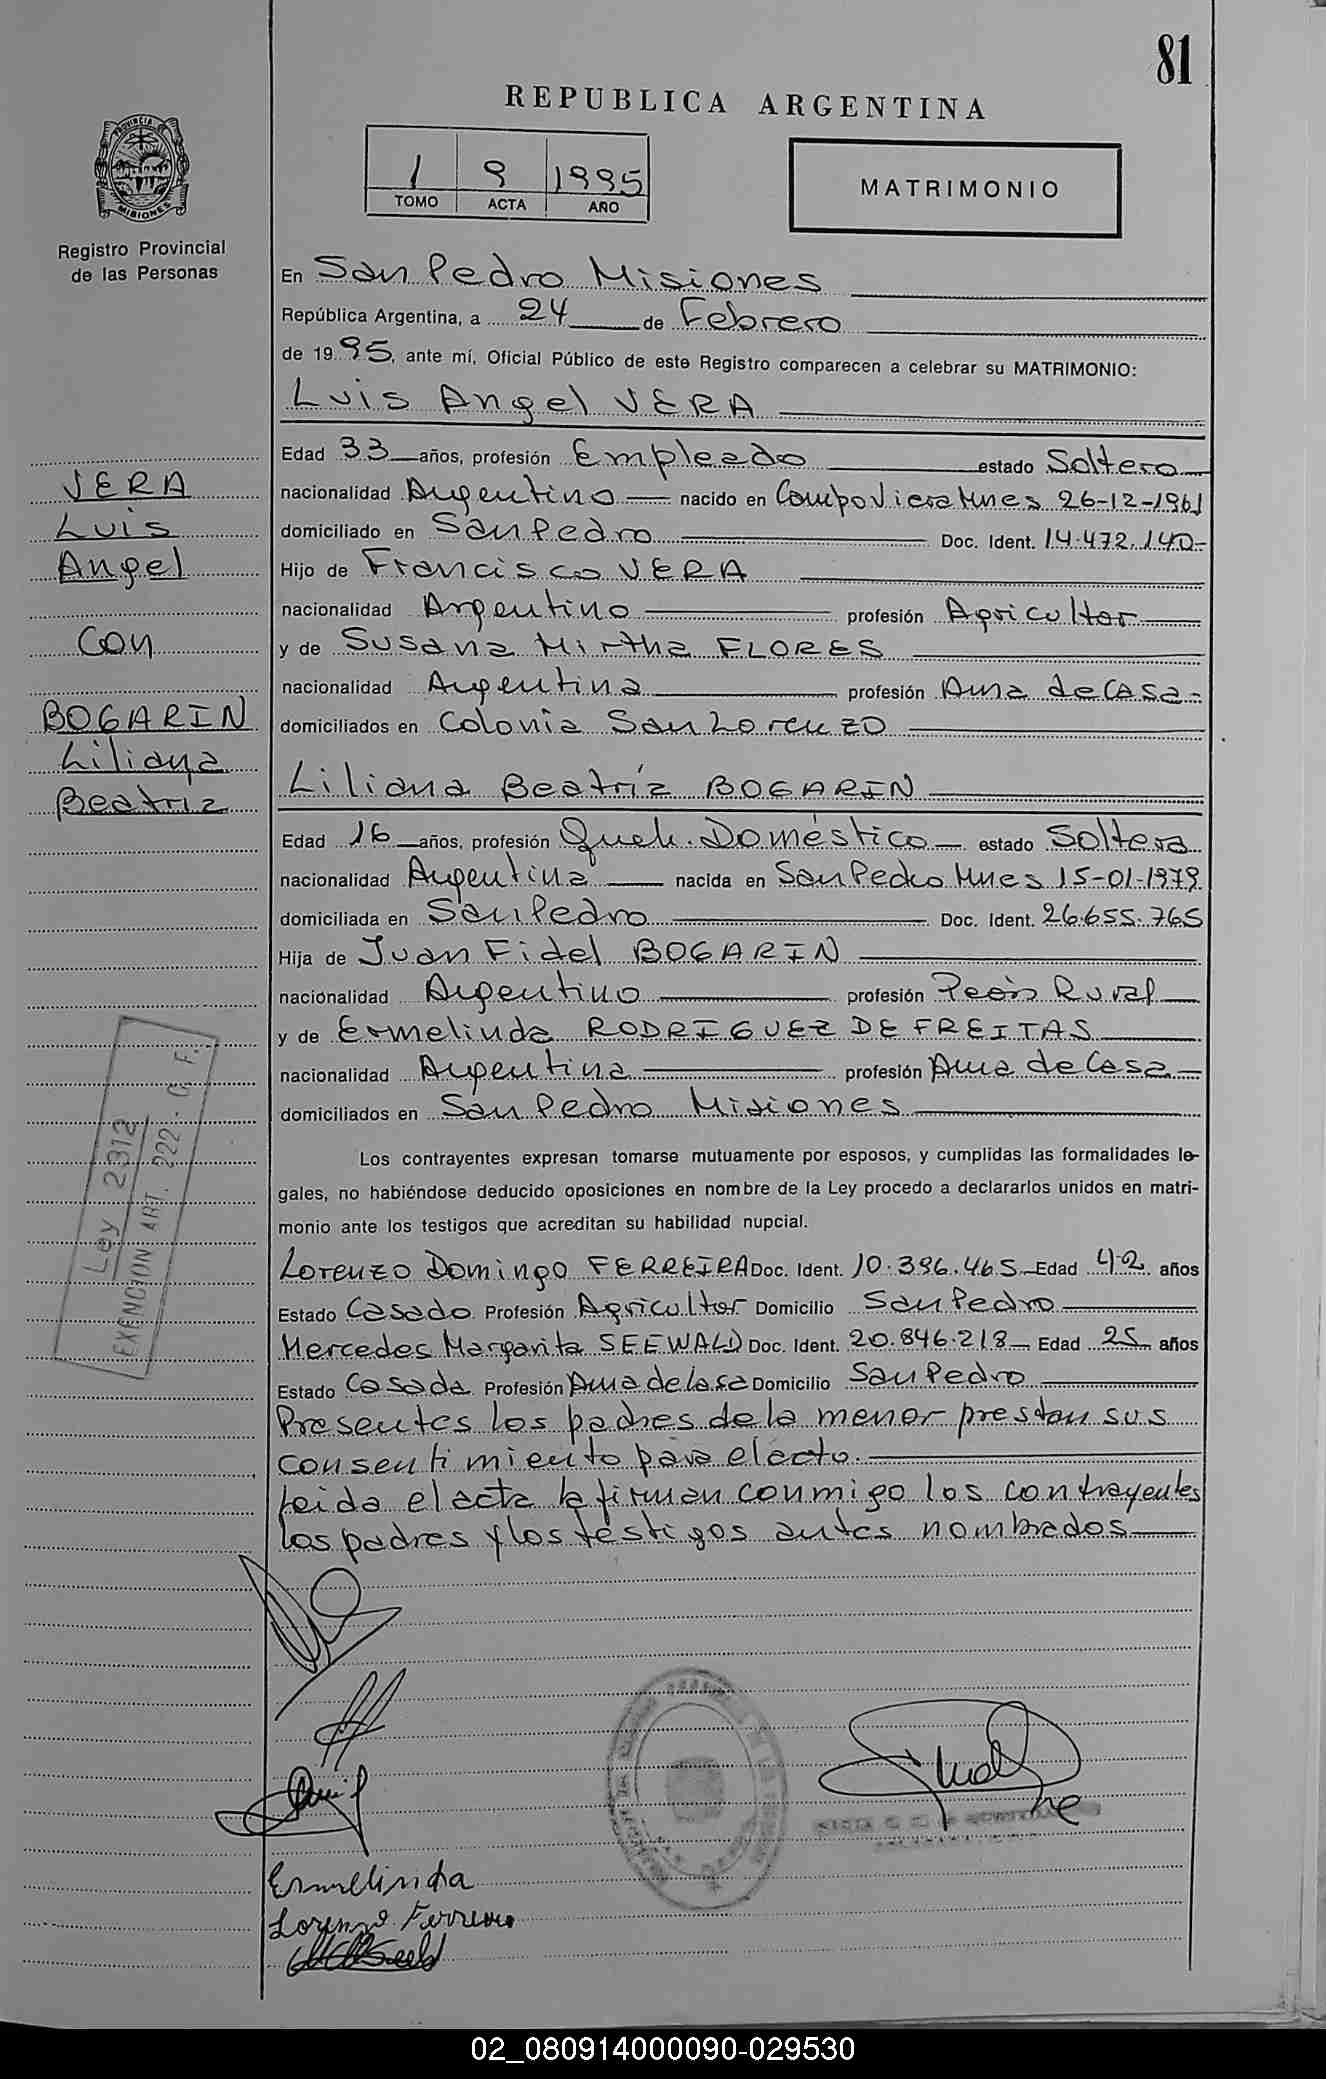 81
REPUBLICA ARGENTINA
PROVINCIA DE
MISIONES
Registro Provincial
de las Personas
1 9 1995
TOMO ACTA AÑO
MATRIMONIO
En San Pedro Misiones
República Argentina, a 24 de Febrero
de 1995, ante mí, Oficial Público de este Registro comparecen a celebrar su MATRIMONIO:
Luis Angel VERA
Edad 33 años, profesión Empleado estado Soltero
nacionalidad Argentino nacido en Campo Viera Mnes 26-12-1961
domiciliado en San Pedro Doc. Ident. 14.472.140-
Hijo de Francisco VERA
nacionalidad Argentino profesión Agricultor
y de Susana Mirtha FLORES
nacionalidad Argentina profesión Ama de Casa-
domiciliados en Colonia San Lorenzo
Liliana Beatríz BOGARIN
Edad 16 años, profesión Queh. Doméstico estado Soltera
nacionalidad Argentina nacida en San Pedro Mnes 15-01-1979
domiciliada en San Pedro Doc. Ident. 26.655.765
Hija de Juan Fidel BOGARIN
nacionalidad Argentino profesión Peón Rural
y de Ermelinda RODRIGUEZ DE FREITAS
nacionalidad Argentina profesión Ama de Casa
domiciliados en San Pedro Misiones
Los contrayentes expresan tomarse mutuamente por esposos, y cumplidas las formalidades le-
gales, no habiéndose deducido oposiciones en nombre de la Ley procedo a declararlos unidos en matri-
monio ante los testigos que acreditan su habilidad nupcial.
Lorenzo Domingo FERREIRA Doc. Ident. 10.396.465 Edad 42 años
Estado Casado Profesión Agricultor Domicilio San Pedro
Mercedes Margarita SEEWALD Doc. Ident. 20.846.218 Edad 25 años
Estado Casada Profesión Ama de Casa Domicilio San Pedro
Presentes los padres de la menor prestan sus
consentimiento para el acto.
Leida el acta la firman conmigo los contrayentes
los padres y los testigos antes nombrados
VERA
Luis
Angel
con
BOGARIN
Liliana
Beatriz
Ley 2312
EXENCION ART. 222. C. F.
Ermelinda
Lorenzo Ferreira
02_080914000090-029530